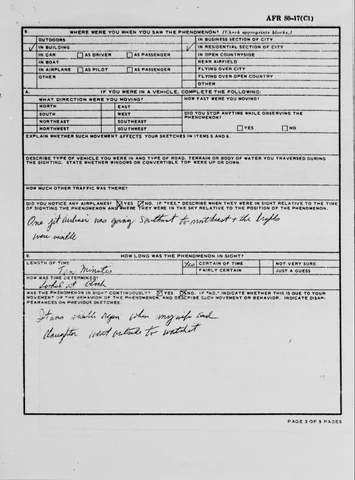 AFR 80-17(C1)
8. WHERE WERE YOU WHEN YOU SAW THE PHENOMENON? (Check appropriate blocks.)
OUTDOORS IN BUSINESS SECTION OF CITY
IN BUILDING IN RESIDENTIAL SECTION OF CITY
IN CAR AS DRIVER AS PASSENGER IN OPEN COUNTRYSIDE
IN BOAT NEAR AIRFIELD
IN AIRPLANE AS PILOT AS PASSENGER FLYING OVER CITY
OTHER FLYING OVER OPEN COUNTRY
OTHER
A. IF YOU WERE IN A VEHICLE, COMPLETE THE FOLLOWING:
WHAT DIRECTION WERE YOU MOVING? HOW FAST WERE YOU MOVING?
NORTH EAST
SOUTH WEST DID YOU STOP ANYTIME WHILE OBSERVING THE
NORTHEAST SOUTHEAST PHENOMENON?
NORTHWEST SOUTHWEST YES NO
EXPLAIN WHETHER SUCH MOVEMENT AFFECTS YOUR SKETCHES IN ITEMS 5 AND 6.
DESCRIBE TYPE OF VEHICLE YOU WERE IN AND TYPE OF ROAD, TERRAIN OR BODY OF WATER YOU TRAVERSED DURING
THE SIGHTING. STATE WHETHER WINDOWS OR CONVERTIBLE TOP WERE UP OR DOWN.
HOW MUCH OTHER TRAFFIC WAS THERE?
DID YOU NOTICE ANY AIRPLANES? YES NO. IF "YES," DESCRIBE WHEN THEY WERE IN SIGHT RELATIVE TO THE TIME
OF SIGHTING THE PHENOMENON AND WHERE THEY WERE IN THE SKY RELATIVE TO THE POSITION OF THE PHENOMENON.
One jet airliner was going Southeast to northwest & the lights
were visible
9. HOW LONG WAS THE PHENOMENON IN SIGHT?
LENGTH OF TIME Yes CERTAIN OF TIME NOT VERY SURE
Ten Minutes FAIRLY CERTAIN JUST A GUESS
HOW WAS TIME DETERMINED?
looked at clock
WAS THE PHENOMENON IN SIGHT CONTINUOUSLY? YES NO. IF "NO," INDICATE WHETHER THIS IS DUE TO YOUR
MOVEMENT OR THE BEHAVIOR OF THE PHENOMENON, AND DESCRIBE SUCH MOVEMENT OR BEHAVIOR. INDICATE DISAP-
PEARANCES ON PREVIOUS SKETCHES.
It was visible again when my wife and
daughter went outside to watch it
PAGE 3 OF 9 PAGES